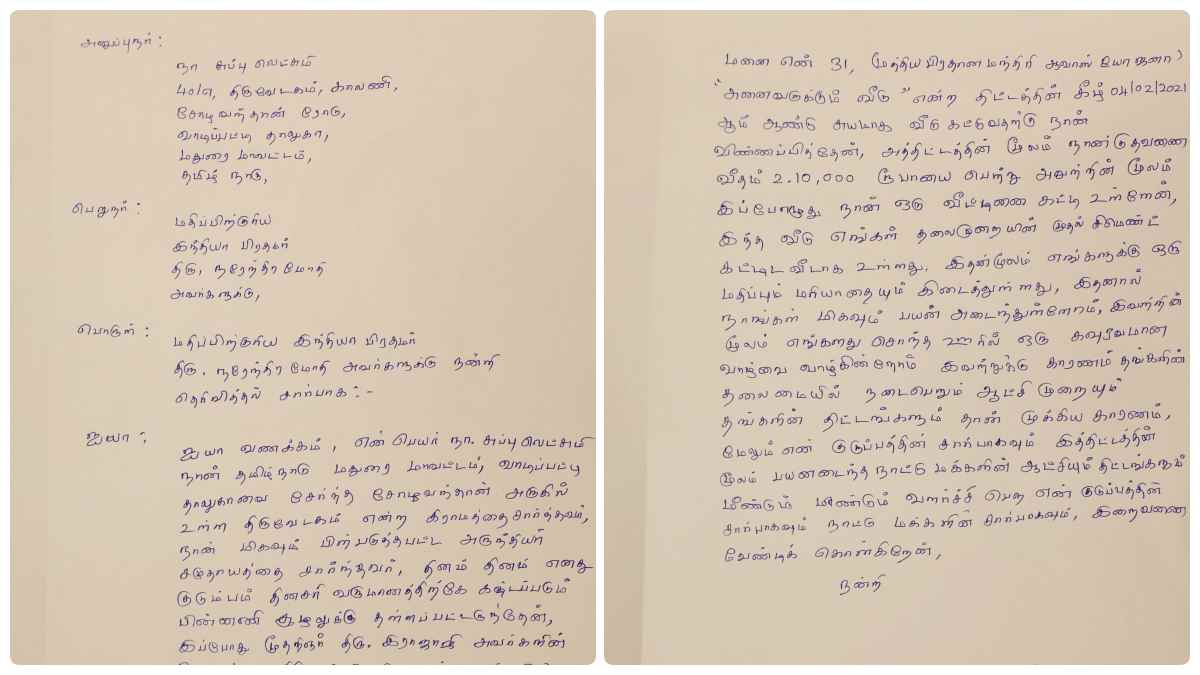 அனுப்புநர் :
நா சுப்பு லெட்சுமி
40/எ, திருவேடகம், காலணி,
சோழவந்தான் ரோடு,
வாடிப்பட்டி தாலுகா,
மதுரை மாவட்டம்,
தமிழ் நாடு,
பெறுநர் :
மதிப்பிற்குரிய
இந்தியா பிரதமர்
திரு, நரேந்திர மோதி
அவர்களுக்கு,
பொருள் :
மதிப்பிற்குரிய இந்தியா பிரதமர்
திரு. நரேந்திர மோதி அவர்களுக்கு நன்றி
தெரிவித்தல் சார்பாக :-
ஐயா :,
ஐயா வணக்கம், என் பெயர் நா. சுப்பு லெட்சுமி
நான் தமிழ்நாடு மதுரை மாவட்டம், வாடிப்பட்டி
தாலுகாவை சேர்ந்த சோழவந்தான் அருகில்
உள்ள திருவேடகம் என்ற கிராமத்தை சார்ந்தவர்,
நான் மிகவும் பிள்படுத்தபட்ட அருந்தியர்
சமுதாயத்தை சார்ந்தவர், தினம் தினம் எனது
குடும்பம் தினசரி வருமானத்திற்கே கஷ்டப்படும்
பின்னணி சூழலுக்கு தள்ளப்பட்டருந்தேன்,
இப்போது முதற்ஞர் திரு. இராஜாஜி அவர்களின்
மனை எண் 31, (மத்திய பிரதான மந்திரி ஆவாஸ் யோஜனா)
"அனைவருக்கும் வீடு" என்ற திட்டத்தின் கீழ் 04/02/2021
ஆம் ஆண்டு சுயமாக வீடு கட்டுவதற்கு நான்
விண்ணப்பித்தேன், அத்திட்டத்தின் மூலம் நான்குதவணை
வீதம் 2.10,000 ரூபாயை பெற்று அவற்றின் மூலம்
இப்பேழுது நான் ஒரு வீட்டினை கட்டி உள்ளேன்,
இந்த வீடு எங்கள் தலைமுறையின் முதல் சிமெண்ட்
கட்டிட வீடாக உள்ளது. இதன்மூலம் எங்களுக்கு ஒரு
மதிப்பும் மரியாதையும் கிடைத்துள்ளது, இதனால்
நாங்கள் மிகவும் பயன் அடைந்துள்ளோம், இவற்றின்
மூலம் எங்களது சொந்த ஊரில் ஒரு கவுரவமான
வாழ்வை வாழ்கின்றோம் இவற்றுக்கு காரணம் தங்களின்
தலைமையில் நடைபெறும் ஆட்சி முறையும்
தங்களின் திட்டங்களும் தான் முக்கிய காரணம்,
மேலும் என் குடும்பத்தின் சார்பாகவும் இத்திட்டத்தின்
மூலம் பயனடைந்த நாட்டு மக்களின் ஆட்சியும் திட்டங்களும்
மீண்டும் மீண்டும் வளர்ச்சி பெற என் குடும்பத்தின்
சார்பாகவும் நாட்டு மக்களின் சார்பாகவும், இறைவனை
வேண்டிக் கொள்கிறேன்,
நன்றி